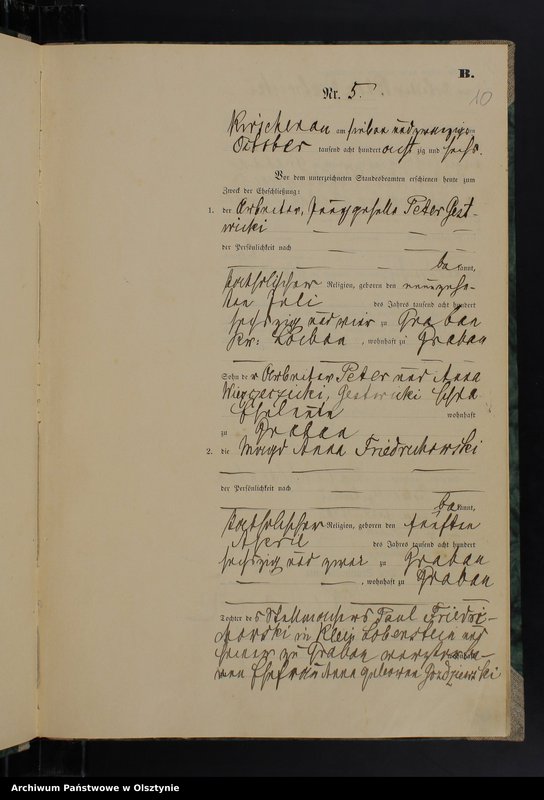 B.
Nr. 5.
10
Kirschenau am sieben und zwanzigsten
October tausend acht hundert acht zig und sechs.
Vor dem unterzeichneten Standesbeamten erschienen heute zum
Zweck der Eheschließung:
1. der Arbeiter, Junggeselle Peter Gest-
wicki
der Persönlichkeit nach
be kannt,
katholischer Religion, geboren den neunzehn-
ten Juli des Jahres tausend acht hundert
sechszig und vier zu Grabau
Kr: Löbau, wohnhaft zu Grabau
Sohn der Arbeiter Peter und Anna
Gestwicki
Eheleute wohnhaft
zu Grabau
2. die Magd Anna Friedrichowski
der Persönlichkeit nach
be kannt,
katholischer Religion, geboren den fünften
April des Jahres tausend acht hundert
sechszig und zwei zu Grabau
, wohnhaft zu Grabau
Tochter des Stellmachers Paul Friedri-
chowski in Klein Lobenstein und
seiner zu Grabau verstorbe-
nen Ehefrau Anna geborene
Archiwum Państwowe w Olsztynie